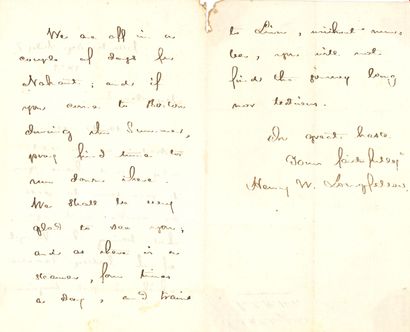 We are off in a
couple of days for
Nahant; and if
you come to Boston
during the Summer,
pray find time to
run down there.
We shall be very
glad to see you;
and as there is a
steamer, four times
a day, and trains
to Lynn, without number, you will not
find the journey long
nor tedious.
In great haste
Yours faithfully
Henry W. Longfellow.